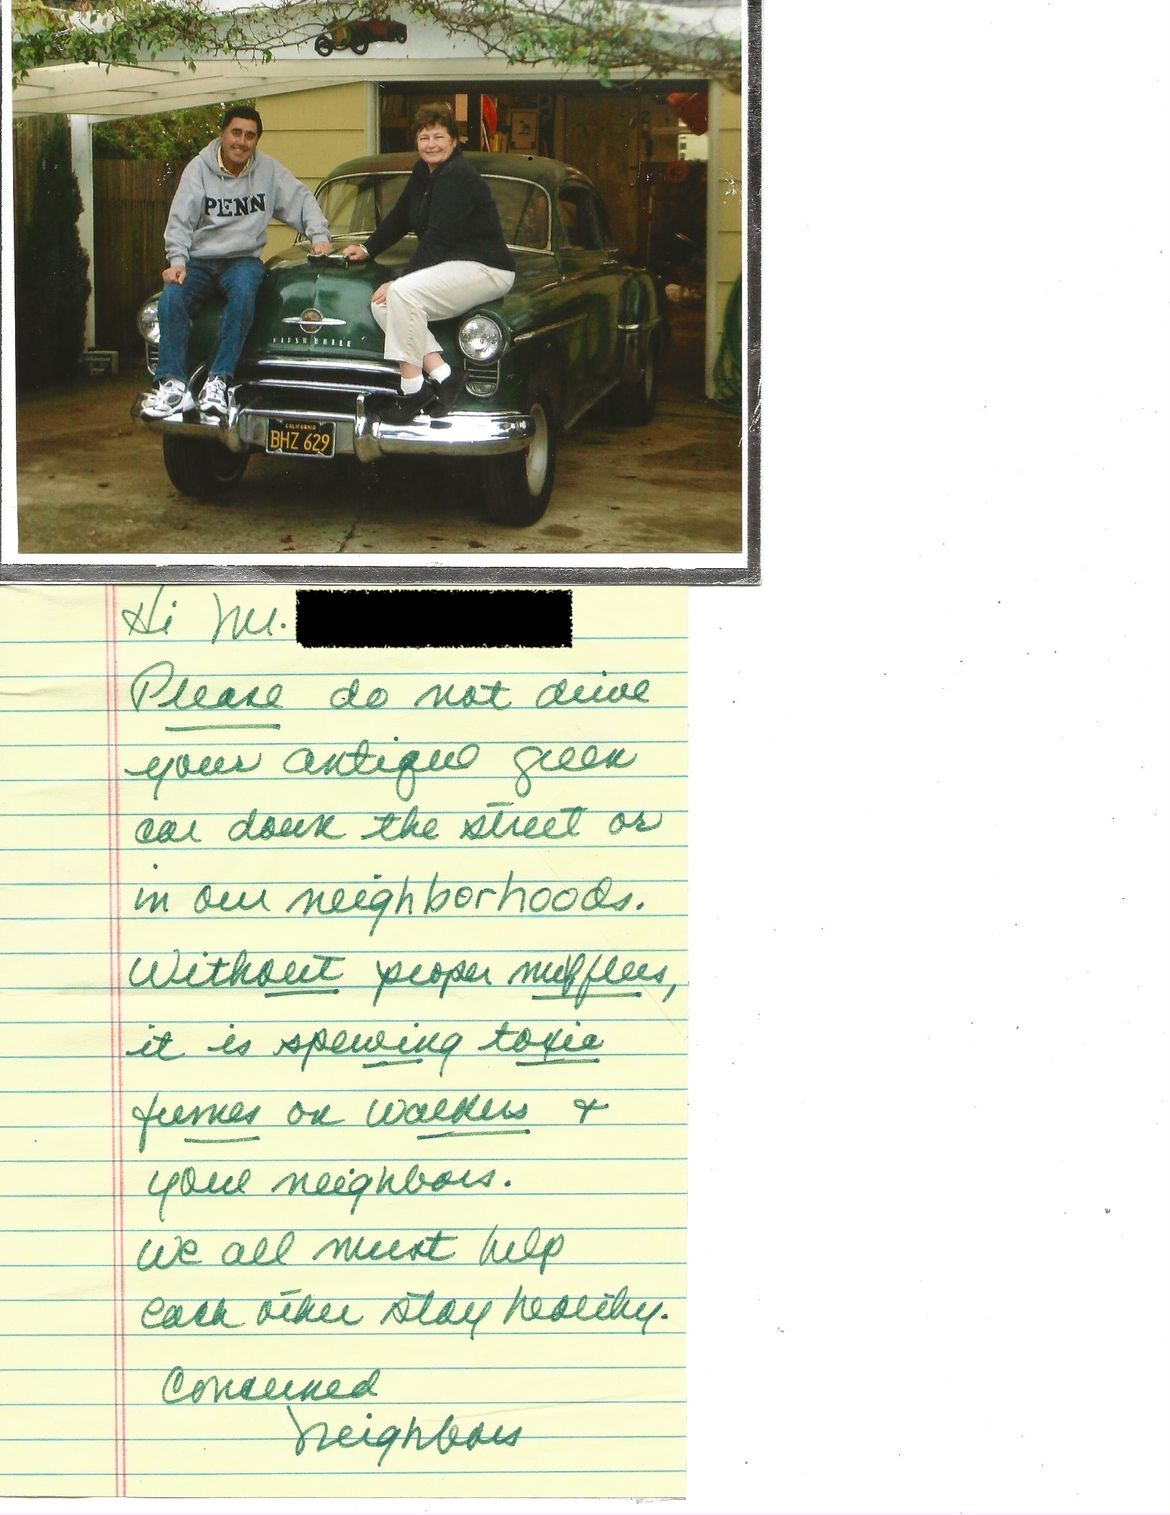 PENN
OLDSMOBILE
CALIFORNIA
BHZ 629
Hi Mr.
Please do not drive
your antique green
car down the street or
in our neighborhoods.
Without proper mufflers,
it is spewing toxic
fumes on walkers &
your neighbors.
We all must help
each other stay healthy.
Concerned
Neighbors